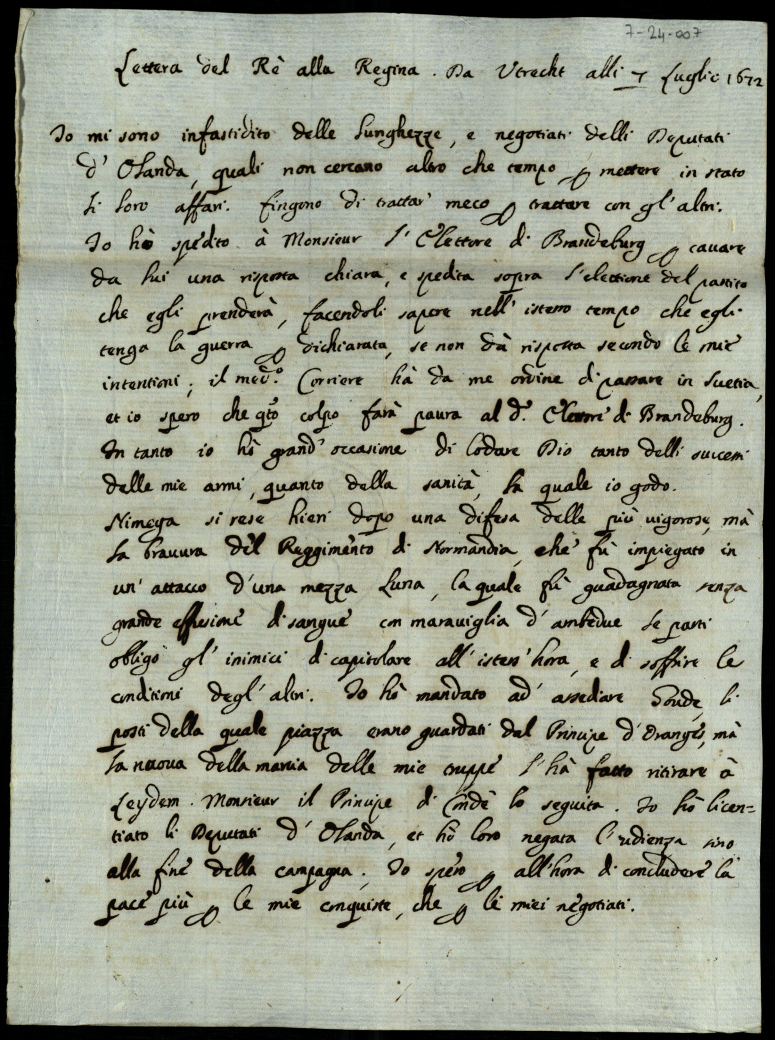 7-24-007
Lettera del Rè alla Regina. Da Utrecht alli 7 Luglio 1672
Io mi sono infastidito delle lunghezze, e negotiati delli Deputati
d'Olanda, quali non cercano altro che tempo p mettere in stato
li loro affari. fingono di trattar meco p trattare con gl'altri.
Io hò spedito à Monsieur l'Elettore di Brandeburg p cavare
da lui una risposta chiara, e spedita sopra l'elettione del partito
che egli prenderà, facendoli sapere nell'istesso tempo che egli
tenga la guerra p dichiarata, se non dà risposta secondo le mie
intentioni; il med.º Corriere hà da me ordine di passare in Suetia,
et io spero che qto colpo farà paura al d.º Elettore di Brandeburg.
In tanto io hò grand'occasione di lodare Dio tanto delli successi
delle mie armi, quanto della sanità, la quale io godo.
Nimega si rese hieri dopo una difesa delle più vigorose, mà
la bravura del Reggimento di Normandia, che fù impiegato in
un'attacco d'una mezza Luna, la quale fù guadagnata senza
grande effusione di sangue con maraviglia d'ambedue le parti
obligò gl'inimici di capitolare all'istess'hora, e di soffrire le
conditioni degl'altri. Io hò mandato ad'assediare Goude, li
posti della quale piazza erano guardati dal Principe d'Oranges, mà
la nuova della marcia delle mie truppe l'hà fatto ritirare à
Leydem. Monsieur il Principe di Condè lo seguita. Io hò licen=
tiato li Deputati d'Olanda, et hò loro negata l'udienza sino
alla fine della campagna; Io spero p all'hora di concludere la
pace più p le mie conquiste, che p li miei negotiati.